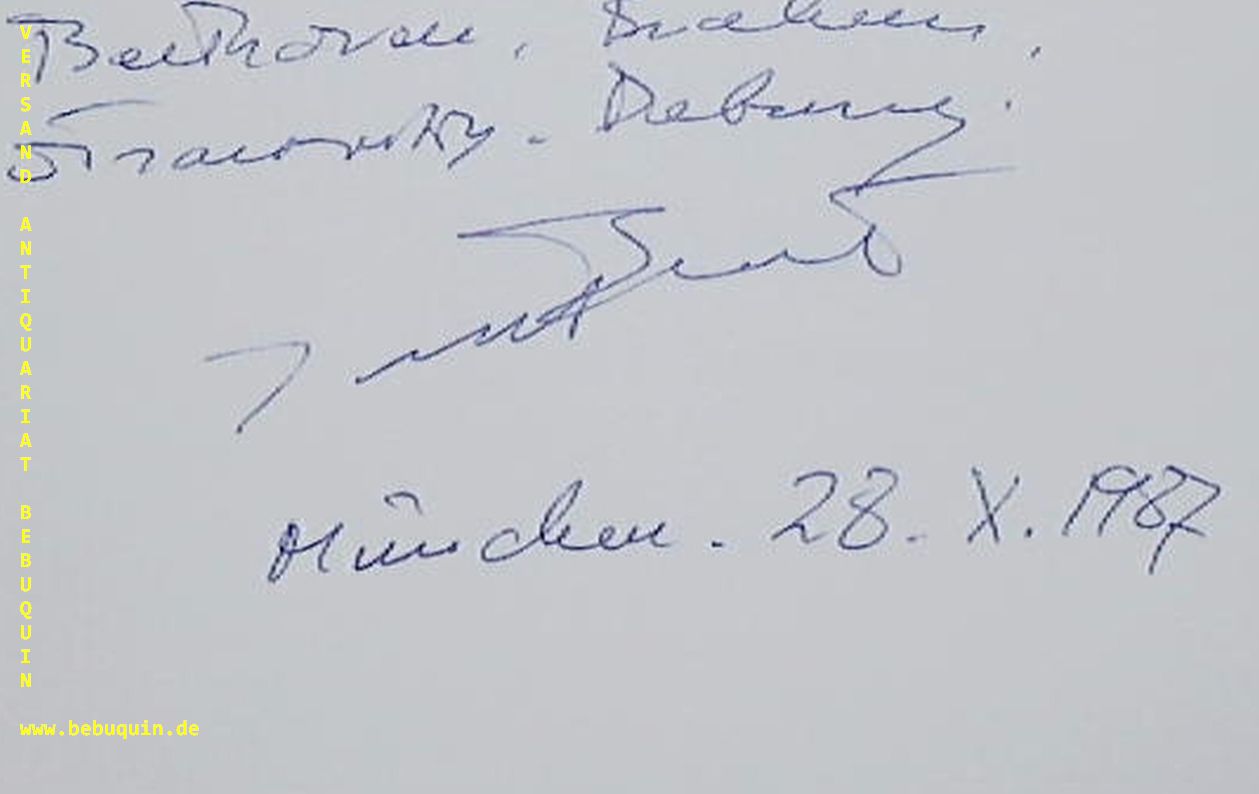 Beethoven, Brahms,
Strawinsky. Debussy.
München. 28. X. 1987
VERSAND ANTIQUARIAT BEBUQUIN
www.bebuquin.de